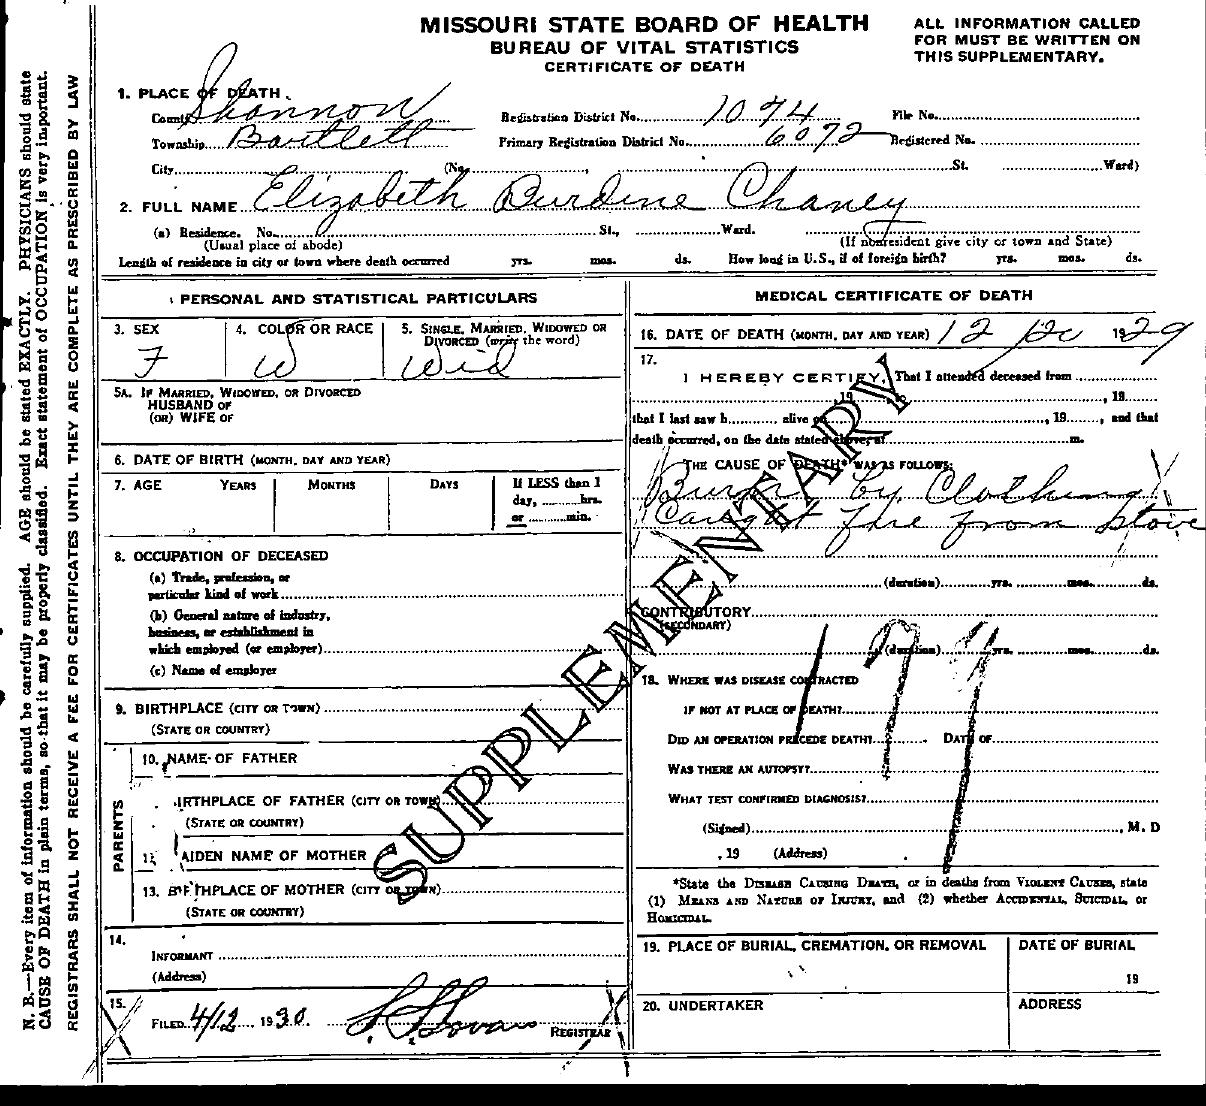 MISSOURI STATE BOARD OF HEALTH
BUREAU OF VITAL STATISTICS
CERTIFICATE OF DEATH
ALL INFORMATION CALLED
FOR MUST BE WRITTEN ON
THIS SUPPLEMENTARY.
1. PLACE OF DEATH.
County Shannon Registration District No. 1074 File No.
Township Bartlett Primary Registration District No. 6072 Registered No.
City (No. , St. Ward)
2. FULL NAME Elizabeth Burdine Chaney
(a) Residence. No. St., Ward.
(Usual place of abode) (If nonresident give city or town and State)
Length of residence in city or town where death occurred yrs. mos. ds. How long in U.S., if of foreign birth? yrs. mos. ds.
PERSONAL AND STATISTICAL PARTICULARS
3. SEX 4. COLOR OR RACE 5. SINGLE, MARRIED, WIDOWED OR
DIVORCED (write the word)
F W Wid
5A. IF MARRIED, WIDOWED, OR DIVORCED
HUSBAND OF
(OR) WIFE OF
6. DATE OF BIRTH (MONTH, DAY AND YEAR)
7. AGE YEARS MONTHS DAYS If LESS than 1
day, hrs.
or min.
8. OCCUPATION OF DECEASED
(a) Trade, profession, or
particular kind of work
(b) General nature of industry,
business, or establishment in
which employed (or employer)
(c) Name of employer
9. BIRTHPLACE (CITY OR TOWN)
(STATE OR COUNTRY)
PARENTS
10. NAME OF FATHER
IRTHPLACE OF FATHER (CITY OR TOWN)
(STATE OR COUNTRY)
AIDEN NAME OF MOTHER
13. BIRTHPLACE OF MOTHER (CITY OR TOWN)
(STATE OR COUNTRY)
14.
INFORMANT
(Address)
15.
FILED 4/12, 1930. REGISTRAR
MEDICAL CERTIFICATE OF DEATH
16. DATE OF DEATH (MONTH, DAY AND YEAR) 12 1929
17.
I HEREBY CERTIFY, That I attended deceased from
, 19 , 19
that I last saw h alive on , 19 , and that
death occurred, on the date stated above, at m.
THE CAUSE OF DEATH* WAS AS FOLLOWS:
Burn by Clothing
Caught fire from stove
(duration) yrs. mos. ds.
CONTRIBUTORY
(SECONDARY)
(duration) yrs. mos. ds.
179
18. WHERE WAS DISEASE CONTRACTED
IF NOT AT PLACE OF DEATH?
DID AN OPERATION PRECEDE DEATH? DATE OF
WAS THERE AN AUTOPSY?
WHAT TEST CONFIRMED DIAGNOSIS?
(Signed) , M. D
, 19 (Address)
*State the DISEASE CAUSING DEATH, or in deaths from VIOLENT CAUSES, state
(1) MEANS AND NATURE OF INJURY, and (2) whether ACCIDENTAL, SUICIDAL, or
HOMICIDAL.
19. PLACE OF BURIAL, CREMATION, OR REMOVAL DATE OF BURIAL
19
20. UNDERTAKER ADDRESS
SUPPLEMENTARY
N. B.—Every item of information should be carefully supplied. AGE should be stated EXACTLY. PHYSICIANS should state
CAUSE OF DEATH in plain terms, so that it may be properly classified. Exact statement of OCCUPATION is very important.
REGISTRARS SHALL NOT RECEIVE A FEE FOR CERTIFICATES UNTIL THEY ARE COMPLETE AS PRESCRIBED BY LAW